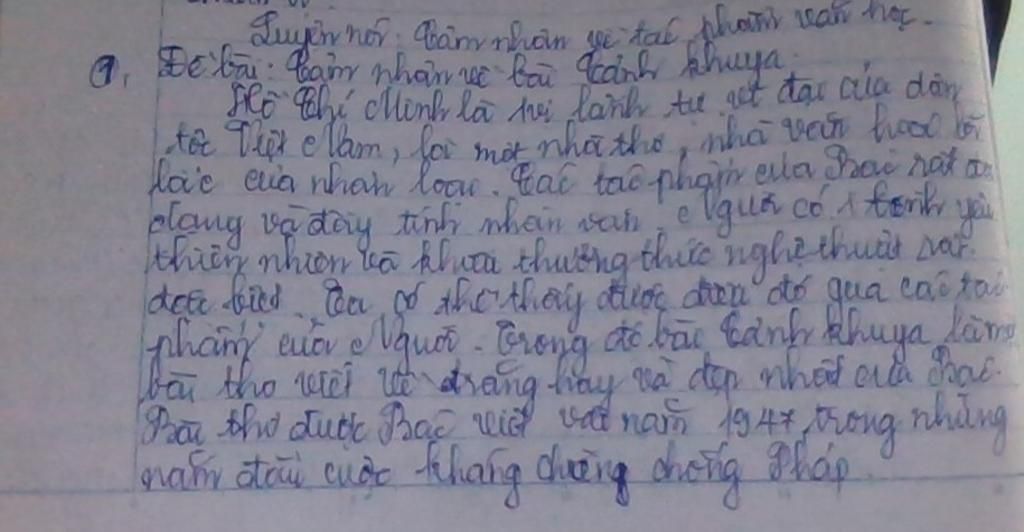 Luyện nói: Cảm nhận về tác phẩm văn học.
1, Đề bài: Cảm nhận về bài Cảnh khuya.
Hồ Chí Minh là vị lãnh tụ vĩ đại của dân
tộc Việt Nam, là một nhà thơ, nhà văn hoá lỗi
lạc của nhân loại. Các tác phẩm của Bác rất đa
dạng và đầy tính nhân văn. Người có tình yêu
thiên nhiên và khiếu thưởng thức nghệ thuật rất
đặc biệt. Ta có thể thấy được điều đó qua các tác
phẩm của Người. Trong đó bài Cảnh khuya là một
bài thơ viết về trăng hay và đẹp nhất của Bác.
Bài thơ được Bác viết vào năm 1947, trong những
năm đầu cuộc kháng chiến chống Pháp.